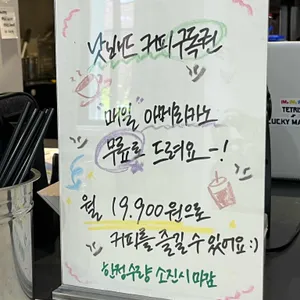 낫배드 커피구독권
매일 아메리카노
무료로 드려요~!
월 19.900원으로
커피를 즐길 수 있어요:)
한정수량 소진시 마감